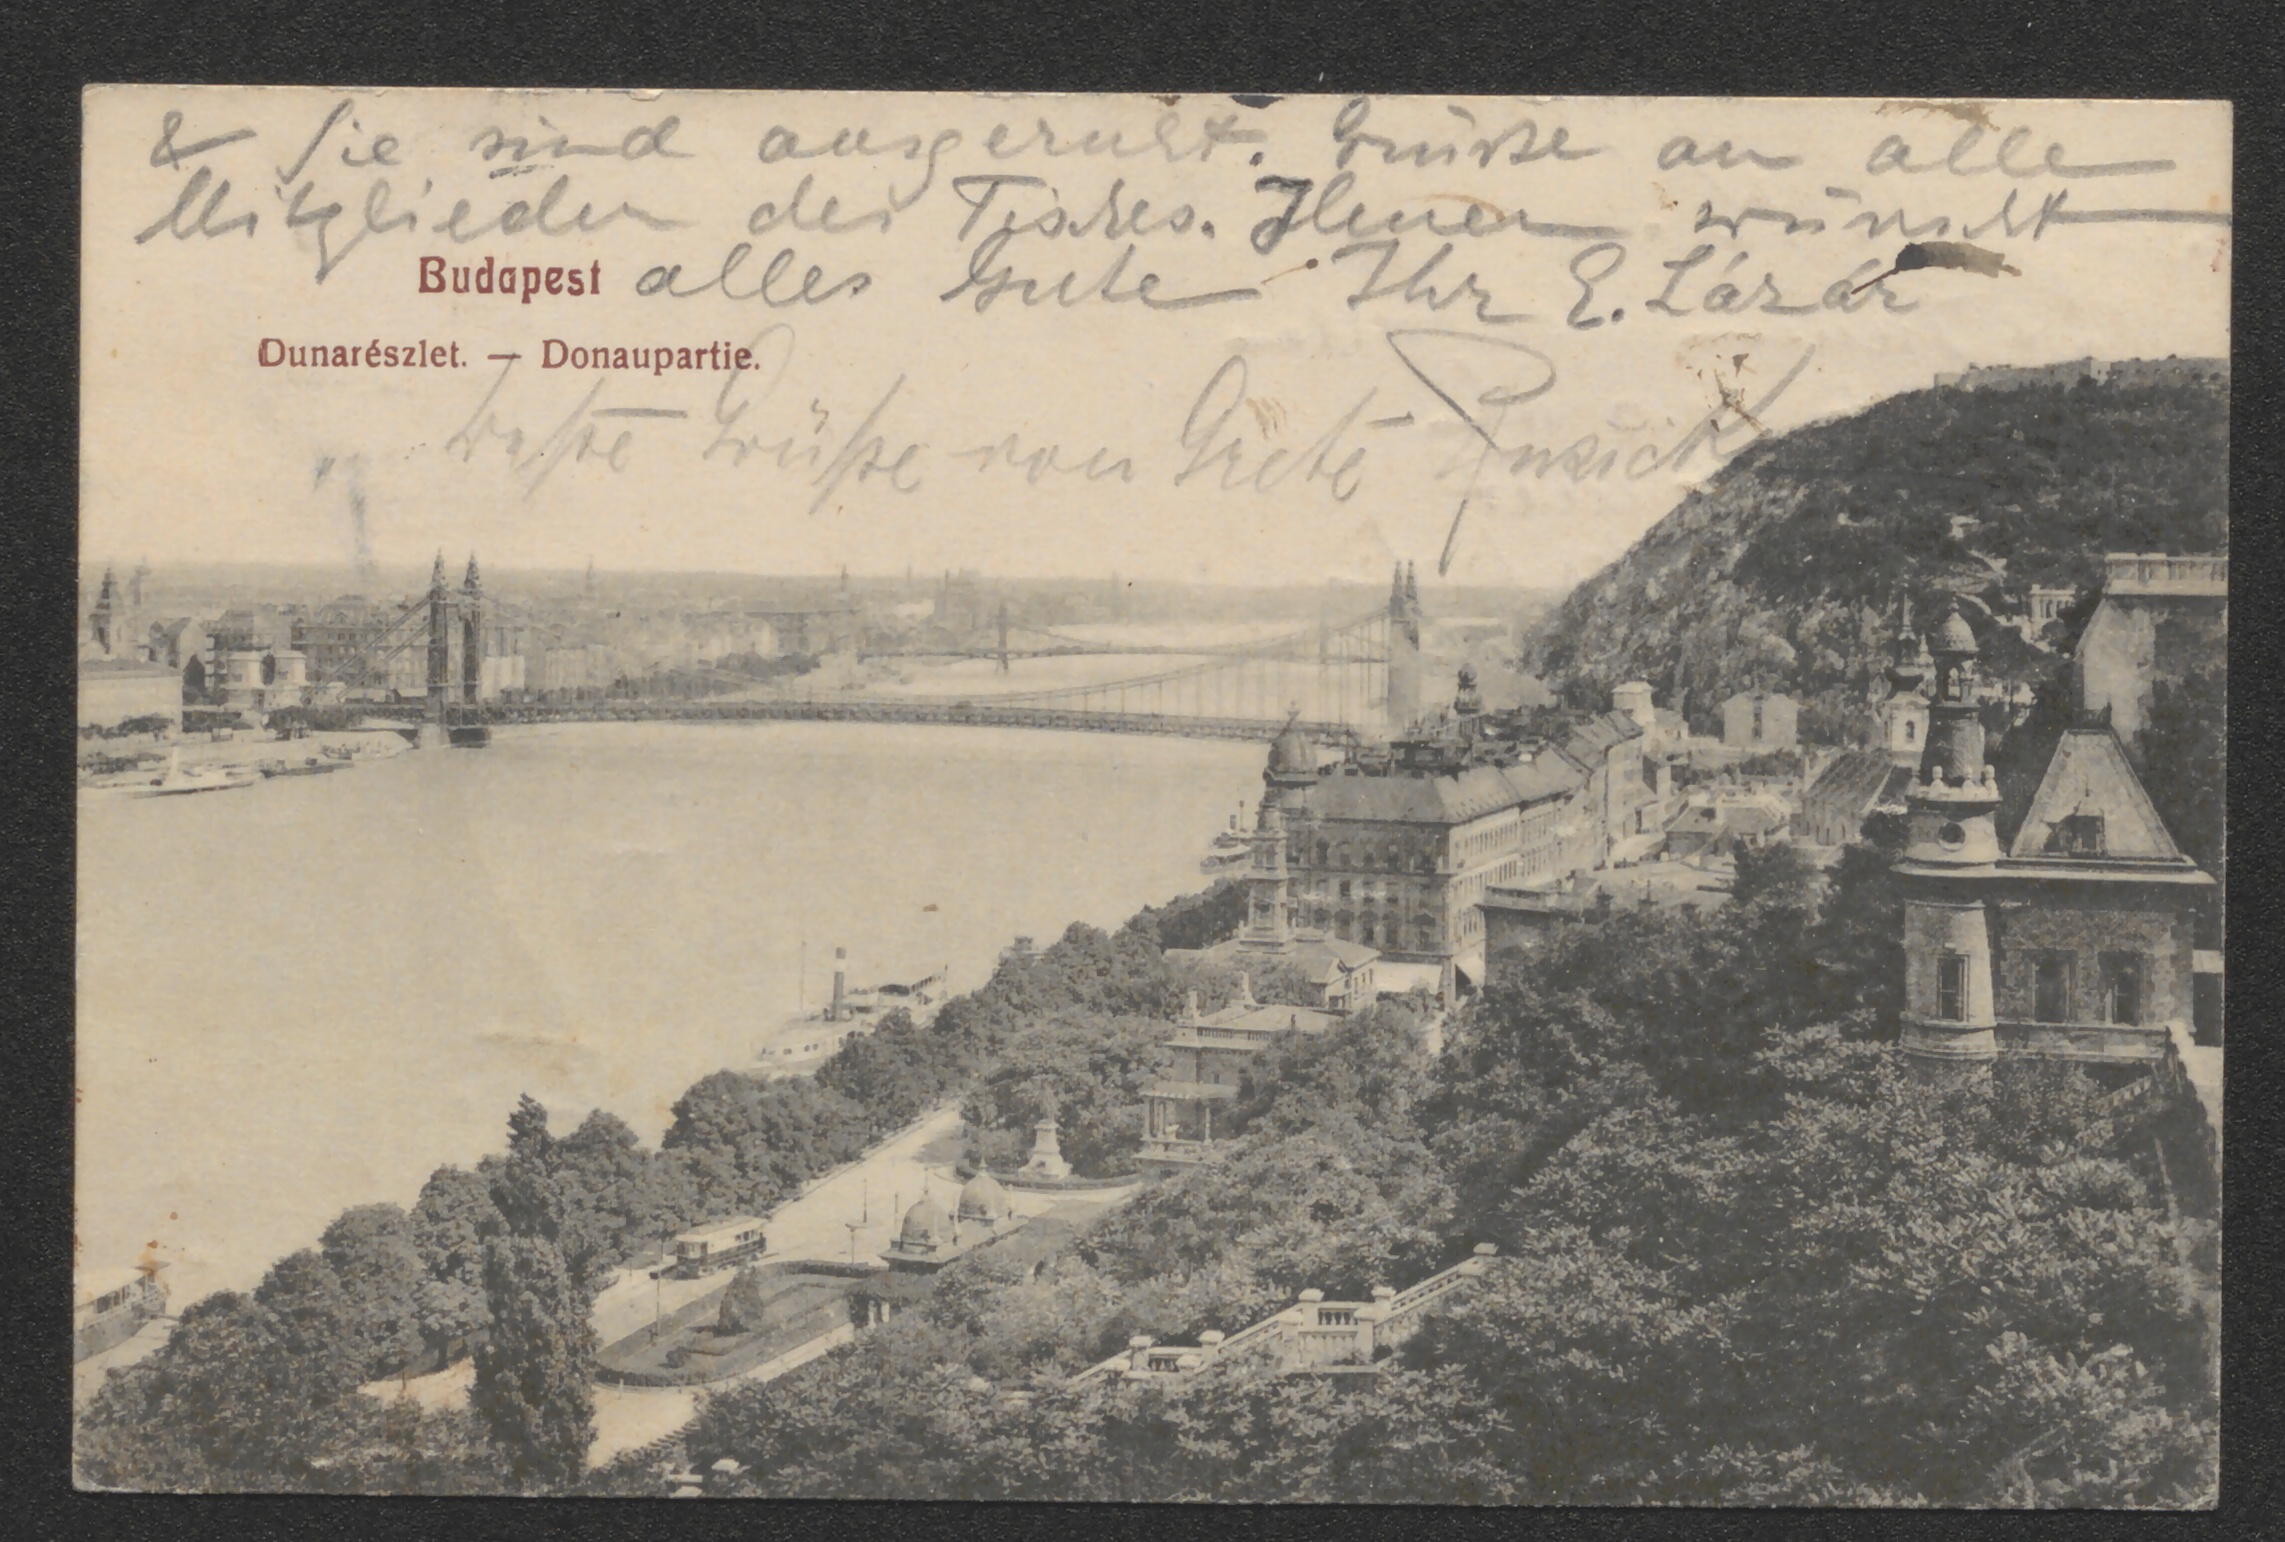 & Sie sind ausgeruht. Grüsse an alle
Mitglieder des Tisches. Ihnen wünscht
Budapest alles Gute Ihr E. Lázár
Dunarészlet. — Donaupartie.
Beste Grüße von Grete